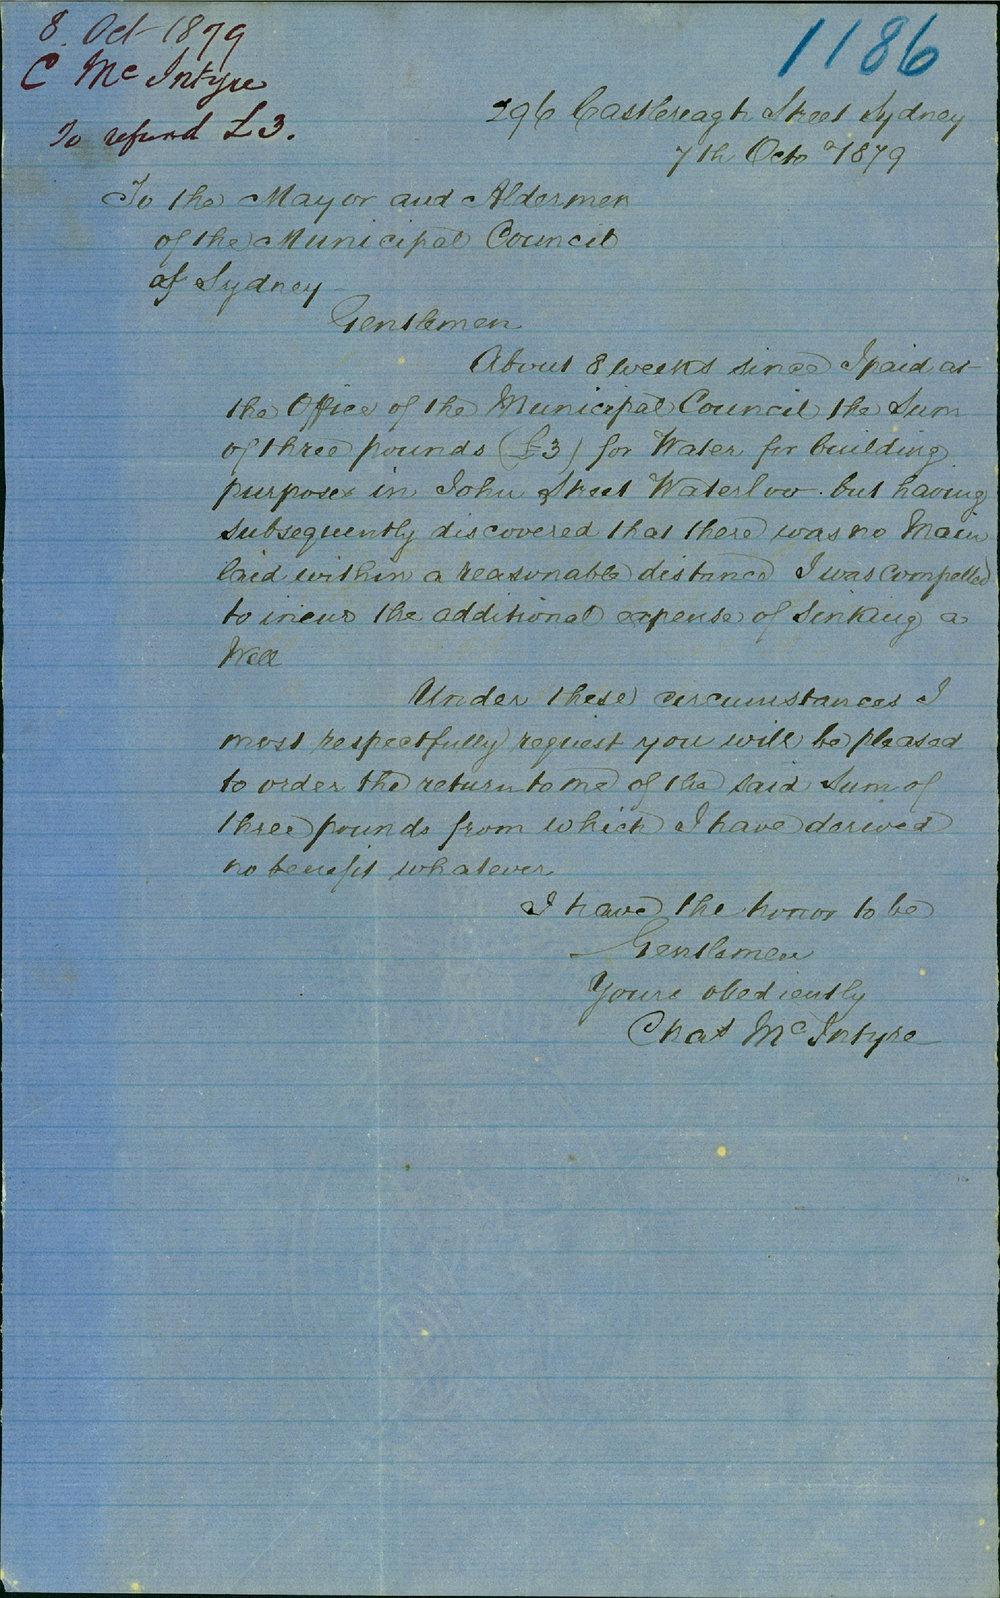 8. Oct 1879
C McIntyre
To refund £3.
1186
296 Castlereagh Street Sydney
7th Octo 1879
To the Mayor and Aldermen
of the Municipal Council
of Sydney
Gentlemen
About 8 weeks since I paid at
the Office of the Municipal Council the Sum
of three pounds (£3) for Water for building
purposes in John Street Waterloo. but having
subsequently discovered that there was no Main
laid within a reasonable distance I was compelled
to incur the additional expense of Sinking a
Well
Under these circumstances I
most respectfully request you will be pleased
to order the return to me of the said Sum of
three pounds from which I have derived
no benefit whatever
I have the honor to be
Gentlemen
Yours obediently
Chas McIntyre